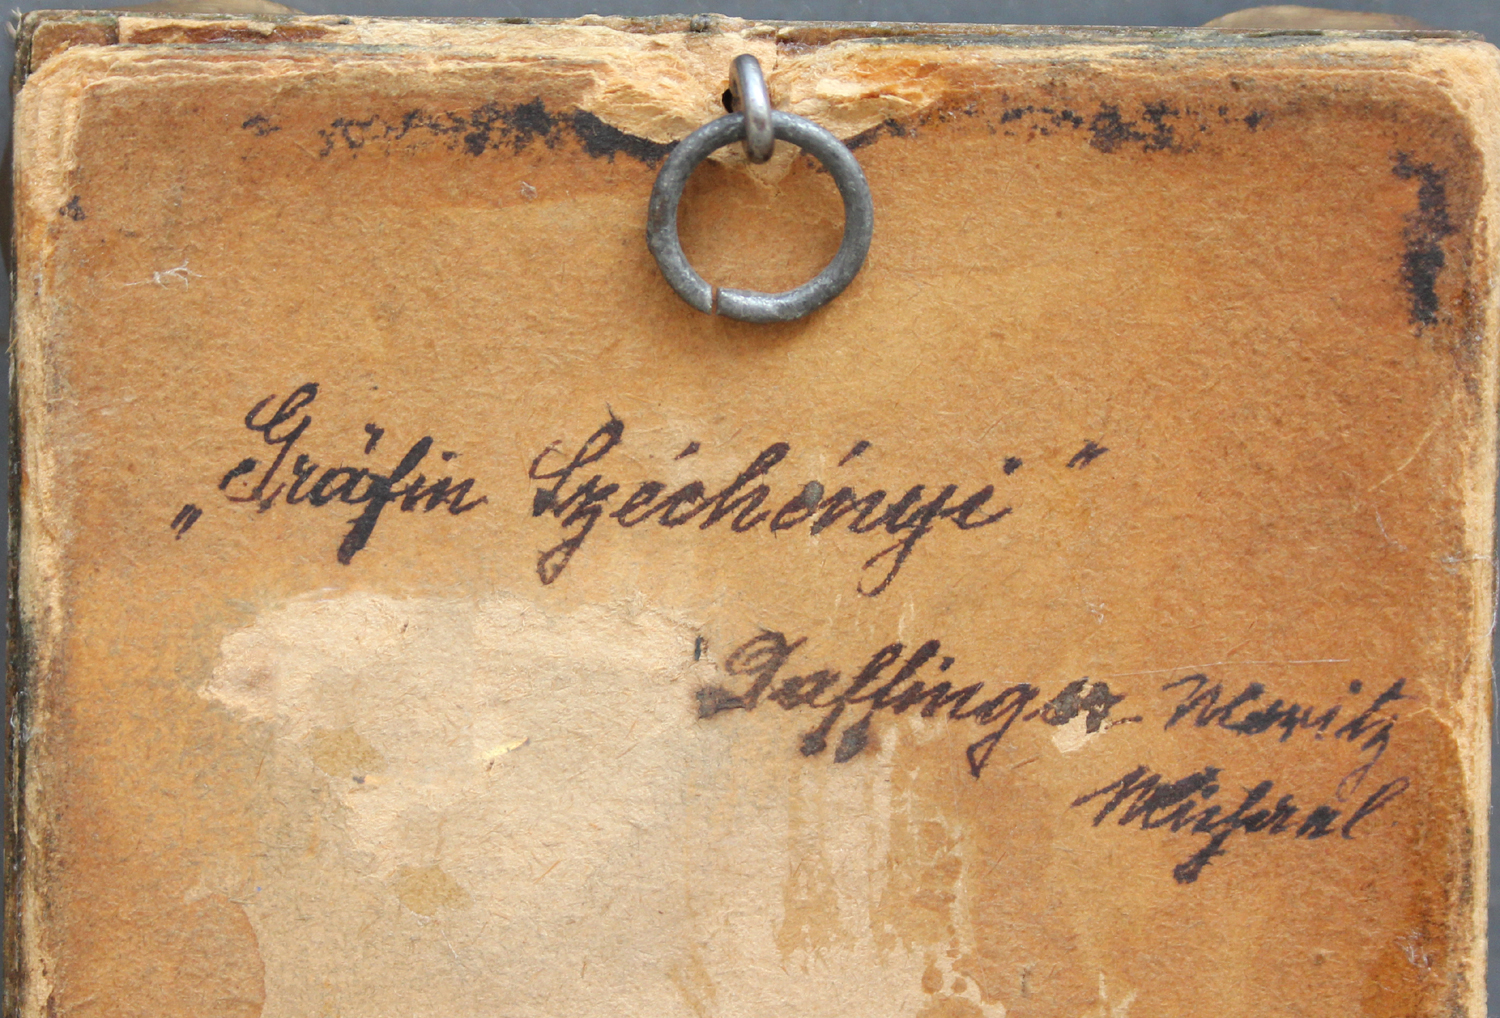 „Gräfin Széchényi"
Daffinger Moritz
Michael